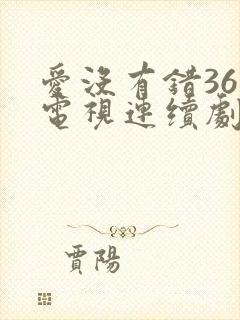 愛沒有錯36
電視連續劇
賈陽